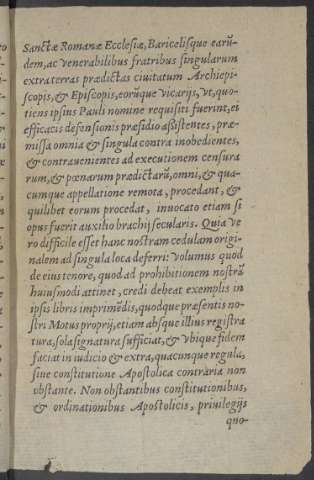 Sanctæ Romanæ Ecclesiæ, Baricellisque earū
dem, ac venerabilibus fratribus singularum
extra terras prædictas ciuitatum Archiepi-
scopis, & Episcopis, eorūque vicarijs, vt, quo-
tiens ipsius Pauli nomine requisiti fuerint, ei
efficacis defensionis præsidio assistentes, præ-
missa omnia & singula contra inobedientes,
& contrauenientes ad executionem censura
rum, & pœnarum prædictarū, omni, & qua-
cumque appellatione remota, procedant, &
quilibet eorum procedat, inuocato etiam si
opus fuerit auxilio brachij secularis. Quia ve
ro difficile esset hanc nostram cedulam origi-
nalem ad singula loca deferri: volumus quod
de eius tenore, quod ad prohibitionem nostrā
huiusmodi attinet, credi debeat exemplis in
ipsis libris imprimēdis, quodque præsentis no-
stri Motus proprij, etiam absque illius registra
tura, sola signatura sufficiat, & vbique fidem
faciat in iudicio & extra, quacunque regula,
siue constitutione Apostolica contraria non
obstante. Non obstantibus constitutionibus,
& ordinationibus Apostolicis, priuilegijs
quo-